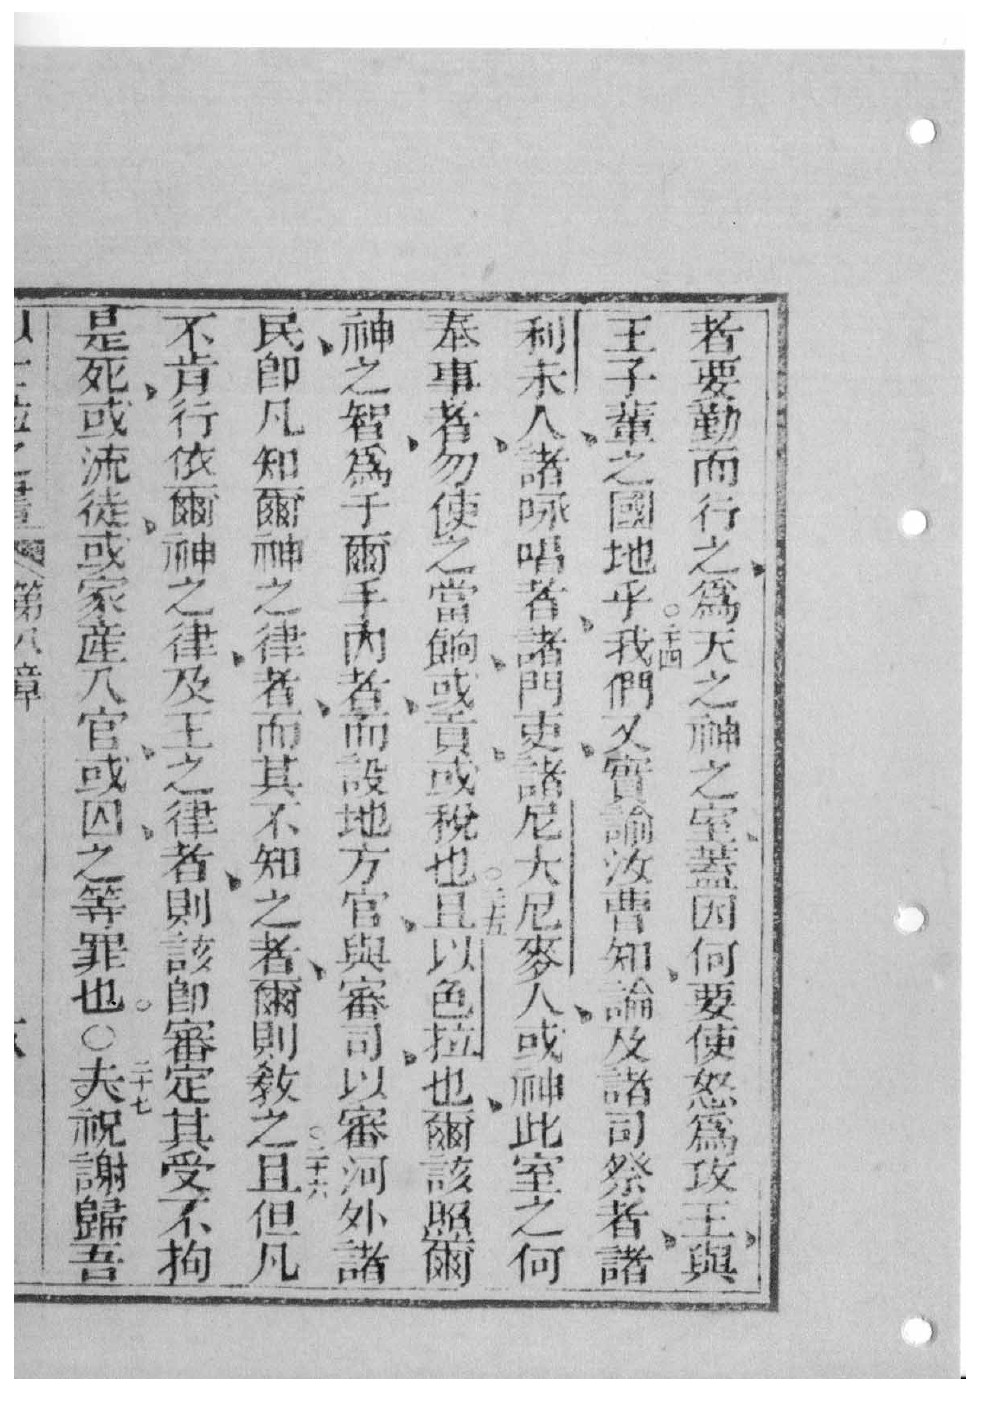 者要勤而行之爲天之神之室蓋因何要使怒爲攻王與
王子輩之國地乎○二十四我們又實諭汝曹知論及諸司祭者諸
利未人諸咏唱者諸門吏諸尼大尼麥人或神此室之何
奉事者勿使之當餉或貢或稅也○二十五且以色拉也爾該照爾
神之智爲于爾手內者而設地方官與審司以審河外諸
民卽凡知爾神之律者而其不知之者爾則教之○二十六且但凡
不肯行依爾神之律及王之律者則該卽審定其受不拘
是死或流徒或家產入官或囚之等罪也○○二十七夫祝謝歸吾
第八章